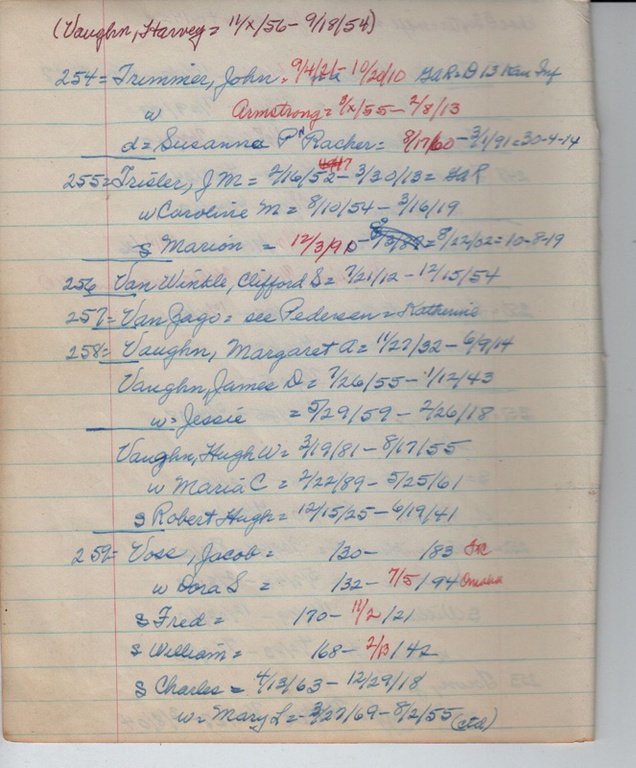 (Vaughn, Harvey = 11/x/56 - 9/18/54)
254 = Trimmer, John = 9/4/21 - 10/20/10 GAR = D 13 Kan Inf
w Armstrong = 9/x/55 - 2/8/13
d = Susanna P "Racher = 8/17/60 - 3/1/91 = 30-4-14
255 = Trisler, J M = 2/16/52 - 3/30/13 = GAR
w Caroline M = 8/10/54 - 3/16/19
s Marion = 12/3/91 - 8/22/02 = 10-8-19
256 Van Winkle, Clifford S = 7/21/12 - 12/15/54
257 = Van Zago = see Pedersen = Katherine
258 = Vaughn, Margaret A = 11/27/32 - 6/9/14
Vaughn, James D = 7/26/55 - 1/12/43
w = Jessie = 5/29/59 - 2/26/18
Vaughn, Hugh W = 3/19/81 - 8/17/55
w Maria C = 2/22/89 - 5/25/61
s Robert Hugh = 12/15/25 - 6/19/41
259 = Voss, Jacob = /30 - /83
w Dora S = /32 - 7/5/94 Omaha
s Fred = /70 - 11/2/21
s William = /68 - 2/13/42
s Charles = 4/13/63 - 12/29/18
w = Mary L = 3/27/69 - 8/2/55